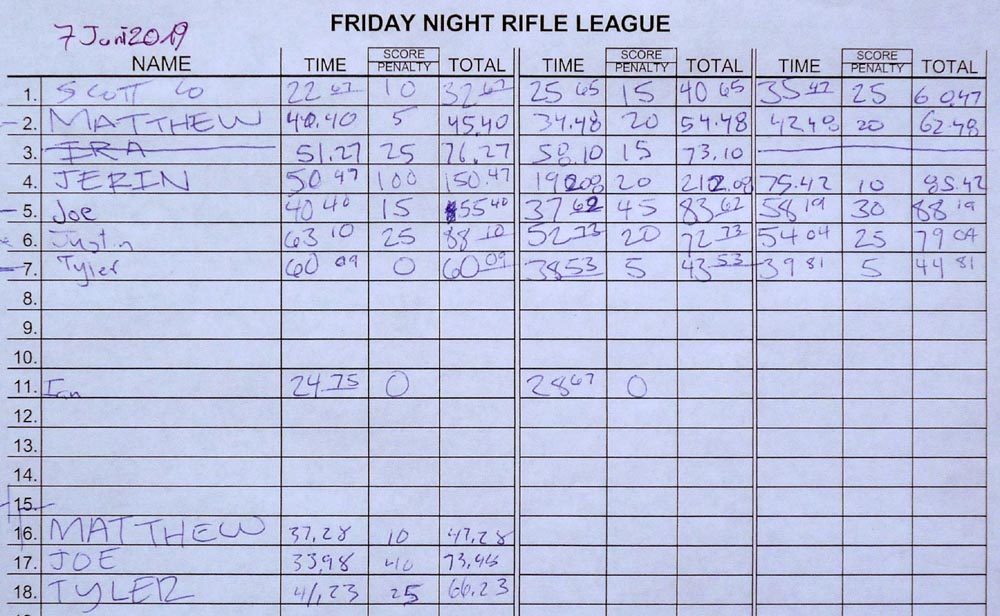 FRIDAY NIGHT RIFLE LEAGUE
7 Juni 2019
NAME TIME SCORE PENALTY TOTAL TIME SCORE PENALTY TOTAL TIME SCORE PENALTY TOTAL
1. SCOTT Co 22 67 10 32 67 25 65 15 40 65 35 47 25 60.47
2. MATTHEW 40.40 5 45.40 34.48 20 54.48 42.48 20 62.48
3. IRA 51.27 25 76.27 58.10 15 73.10
4. JERIN 50 47 100 150.47 192 08 20 212.08 75.42 10 85.42
5. Joe 40 40 15 55 40 37 62 45 83 62 58 19 30 88 19
6. Justin 63 10 25 88 10 52 73 20 72 73 54 04 25 79 04
7. Tyler 60 09 0 60 09 38 53 5 43 53 39 81 5 44 81
8.
9.
10.
11. Ian 24.75 0 28 67 0
12.
13.
14.
15.
16. MATTHEW 37.28 10 47.28
17. JOE 33.98 40 73.98
18. TYLER 41.23 25 66.23